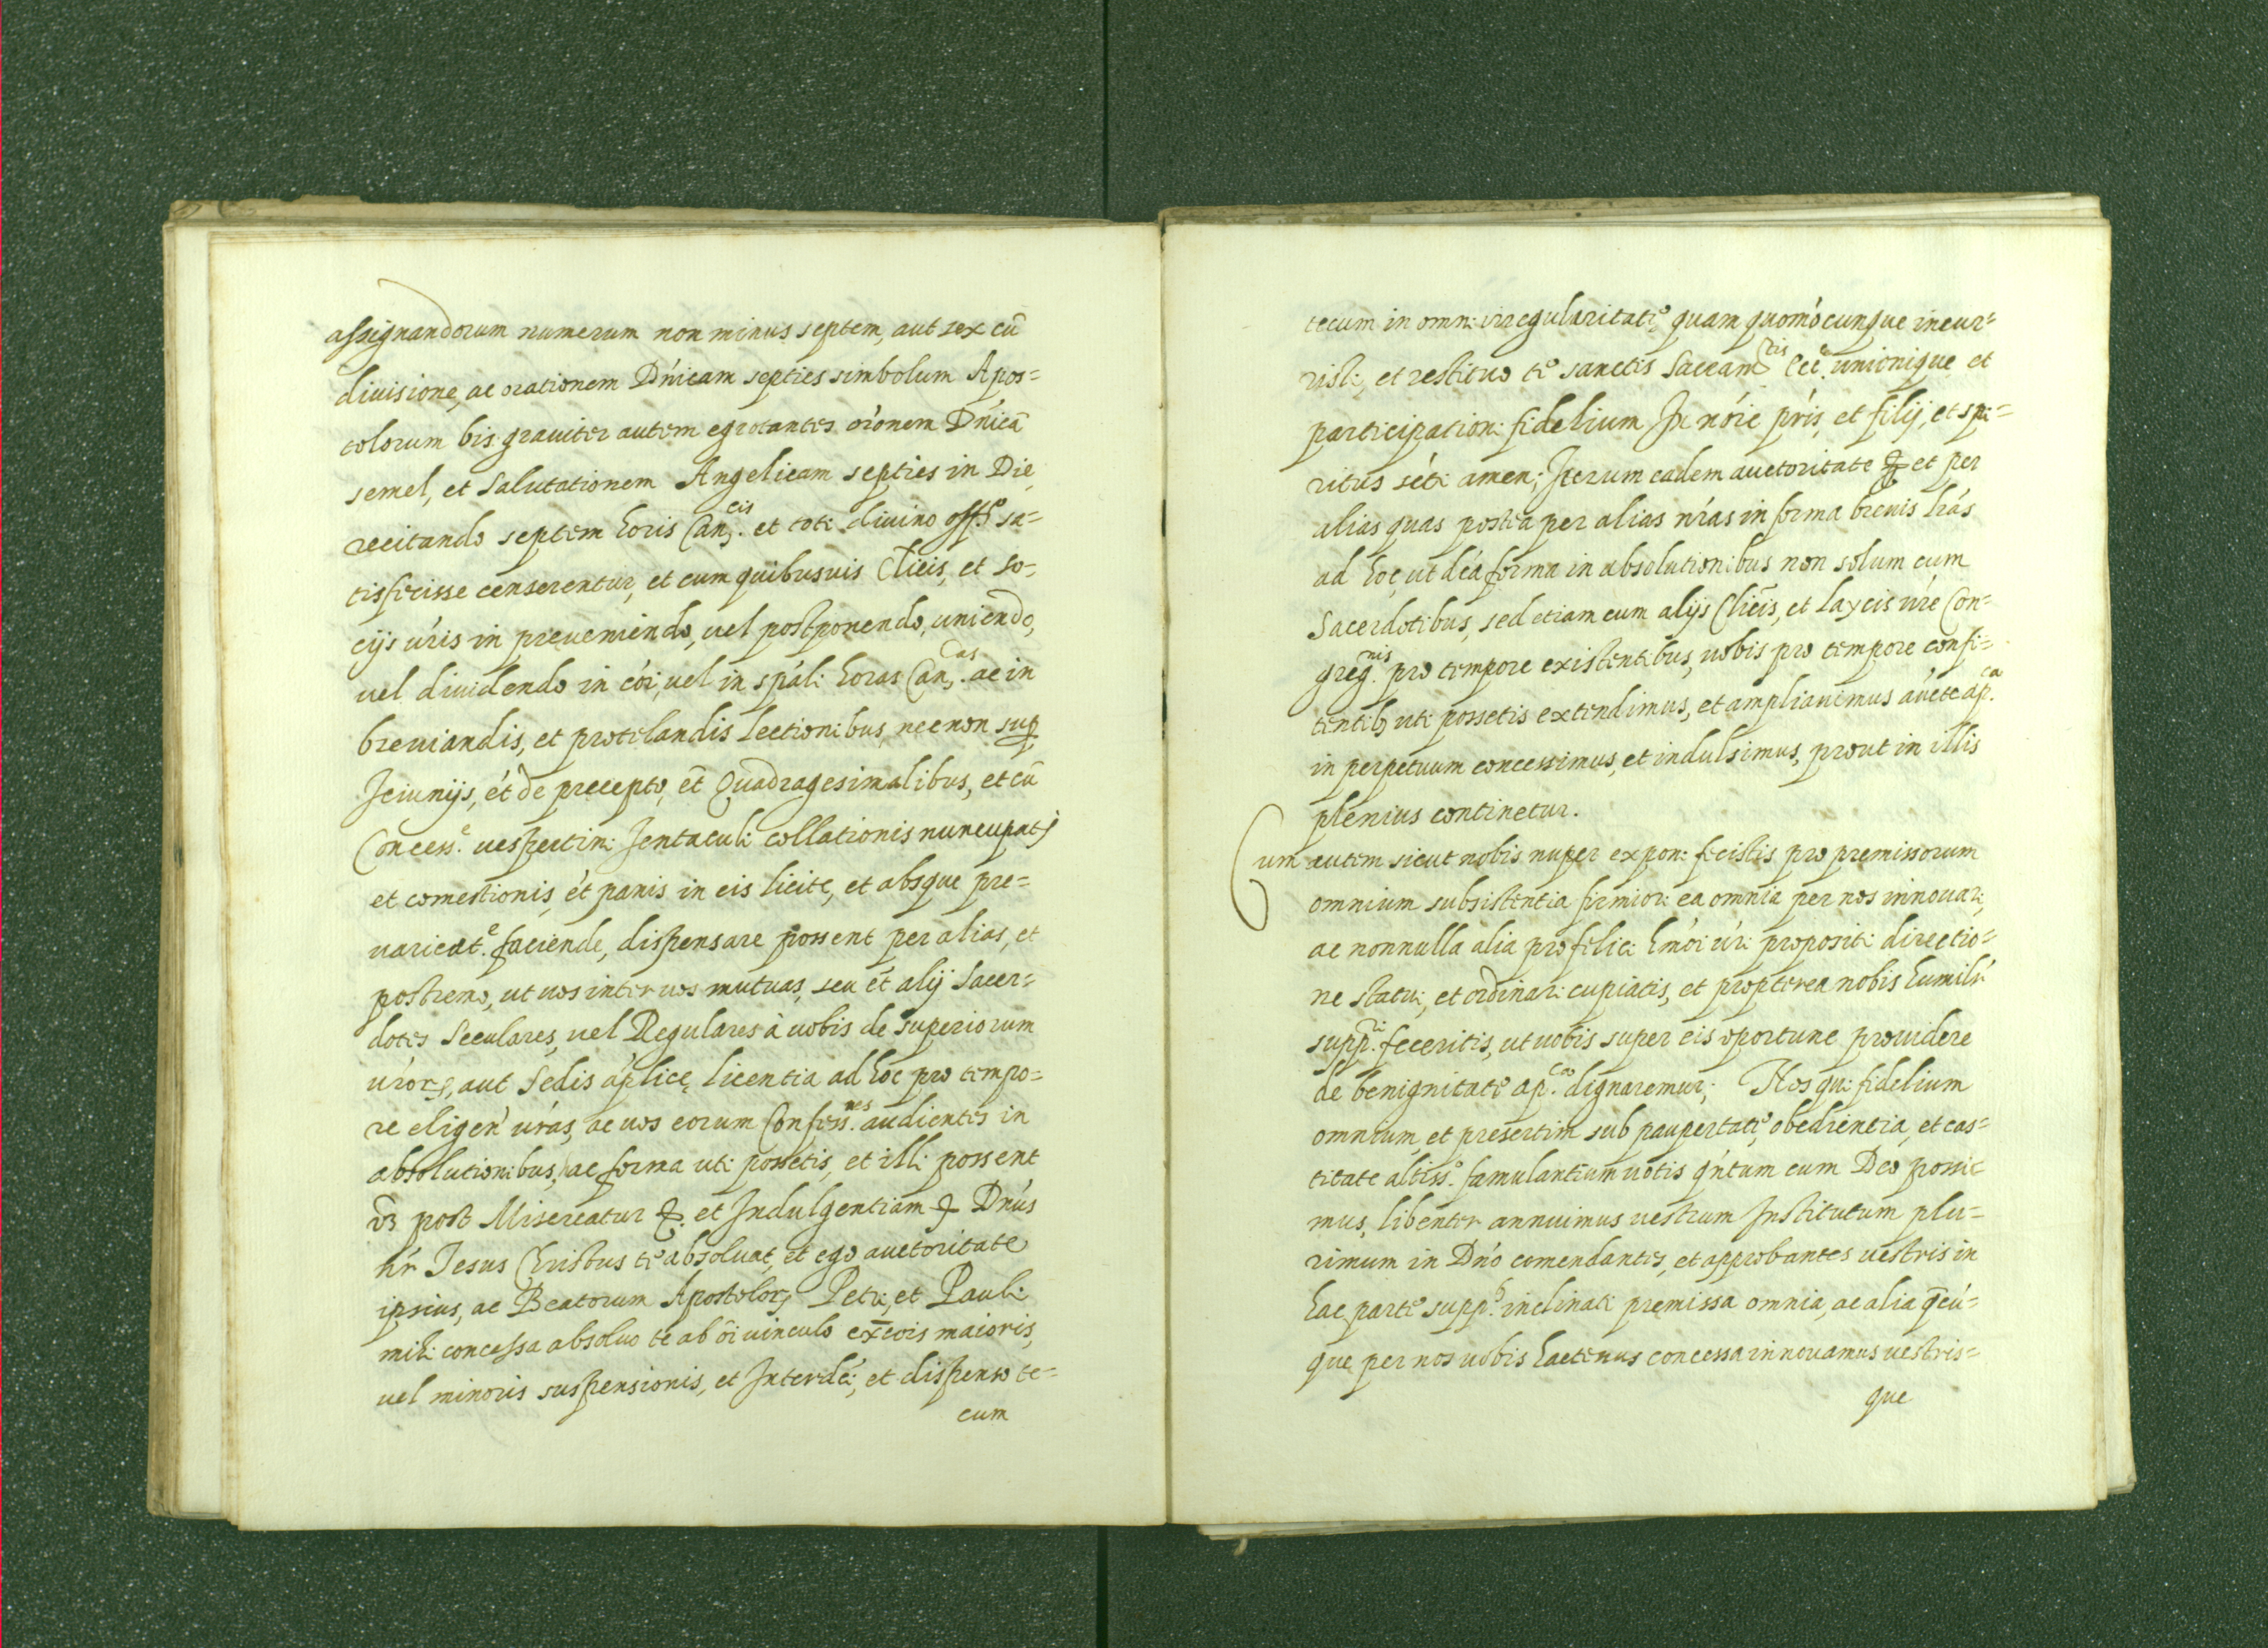 assignandorum numerum non minus septem, aut sex cū
diuisione, ac orationem Dn'icam septies simbolum Apos=
tolorum bis grauiter autem egrotantes or'onem Dn'icā
semel, et Salutationem Angelicam septies in Die
recitando septem horis Can.cis et toti diuino off.o sa=
tisfecisse censerentur, et cum quibusuis Cl'icis, et so=
cijs ur'is in preueniendo, uel postponendo, uniendo,
uel diuidendo in co'i, uel in spa'li horas Can.cas ac in
breuiandis, et protelandis lectionibus, necnon sup
Jeiunijs, ét de precepto, et Quadragesimalibus, et cū
Concess.e uespertini Jentaculi collationis nuncupati
et comestionis, ét panis in eis licite, et absque pre=
uaricat.e faciende, dispensare possent per alias, et
postremo, ut uos inter uos mutuas, seu ét alij Sacer=
dotes Seculares, uel Regulares à uobis de superiorum
ur'or, aut Sedis ap'lice licentia ad hoc pro tempo=
re eligen' ur'as, ac uos eorum Confess.nes audientes in
absolutionibus, hac forma uti possetis, et illi possent
uz post Misereatur &. et Indulgentiam & Dn'us
nr' Jesus Christus te absoluat, et ego auctoritate
ipsius, ac Beatorum Apostolor, Petri, et Pauli
mihi concessa absoluo te ab oi' uinculo exc̄ois maioris,
uel minoris suspensionis, et Interd'ci, et dispenso te=
cum
tecum in omni irregularitate, quam quomo'cunque incur=
risti, et restituo te sanctis Sacram.tis Ecc.e unionique et
participationi fidelium In no'ie pr'is, et filij, et spi=
ritus sc'ti amen; Iterum eadem auctoritate & et per
alias quas postea per alias nr'as in forma breuis lr'as
ad hoc, ut d'ca forma in absolutionibus non solum cum
Sacerdotibus, sed etiam cum alijs Cl'icis, et Laycis ur'e Con=
greg.nis pro tempore existentibus, uobis pro tempore confi=
tentib; uti possetis extendimus, et ampliauimus au'cte ap.ca
in perpetuum concessimus, et indulsimus, prout in illis
plenius continetur.
Cum autem sicut nobis nuper exponi fecistis pro premissorum
omnium subsistentia firmiori ea omnia per nos innouari,
ac nonnulla alia pro felici hmo'i ur'i propositi directio=
ne statui, et ordinari cupiatis, et propterea nobis humilr'
supp.ri feceritis, ut uobis super eis oportune prouidere
de benignitate ap.ca dignaremur; Nos qui fidelium
omnium, et presertim sub paupertate, obedientia, et cas=
titate altiss.o famulantium uotis qn'tum cum Deo possu
mus, libenter annuimus uestrum Institutum plu=
rimum in Dn'o comendantes, et approbantes uestris in
hac parte supp.b inclinati premissa omnia, ac alia qēcú=
que per nos uobis hactenus concessa innouamus uestris=
que